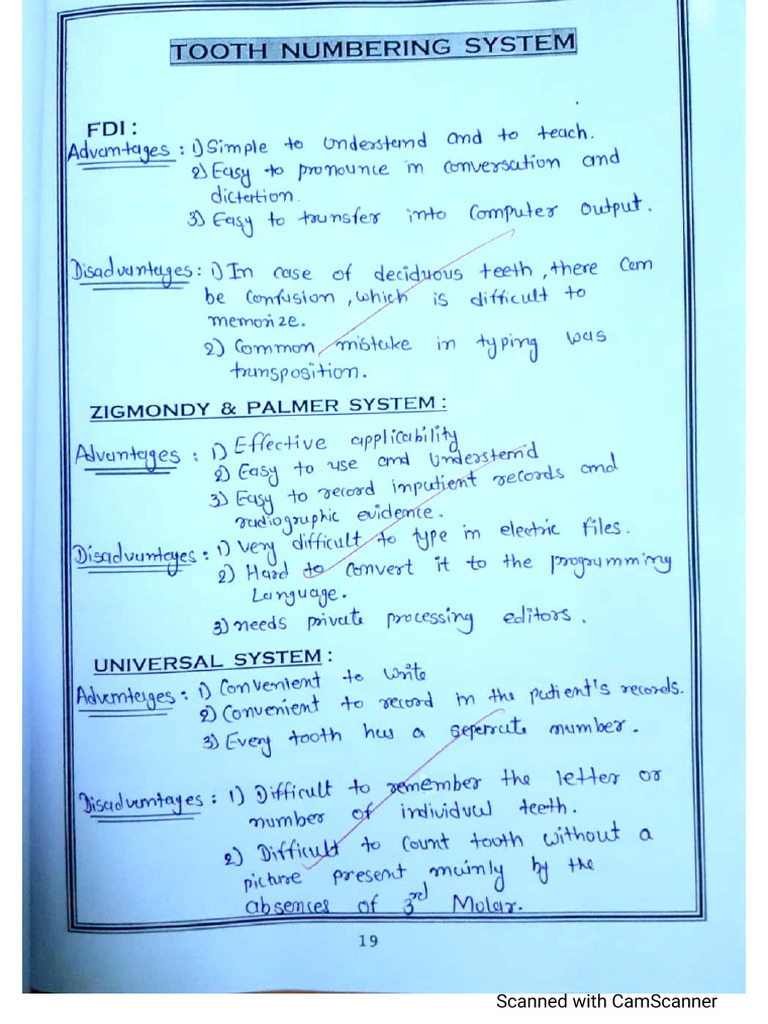 TOOTH NUMBERING SYSTEM
FDI :
Advantages : 1) Simple to understand and to teach.
2) Easy to pronounce in conversation and
dictation.
3) Easy to transfer into computer output.
Disadvantages : 1) In case of deciduous teeth, there can
be confusion, which is difficult to
memorize.
2) Common mistake in typing was
transposition.
ZIGMONDY & PALMER SYSTEM :
Advantages : 1) Effective applicability
2) Easy to use and understand
3) Easy to record inpatient records and
radiographic evidence.
Disadvantages : 1) very difficult to type in electric files.
2) Hard to convert it to the programming
Language.
3) needs private processing editors.
UNIVERSAL SYSTEM :
Advantages : 1) Convenient to write
2) Convenient to record in the patient's records.
3) Every tooth has a seperate number.
Disadvantages : 1) Difficult to remember the letter or
number of individual teeth.
2) Difficult to count tooth without a
picture present mainly by the
absences of 3rd Molar.
19
Scanned with CamScanner